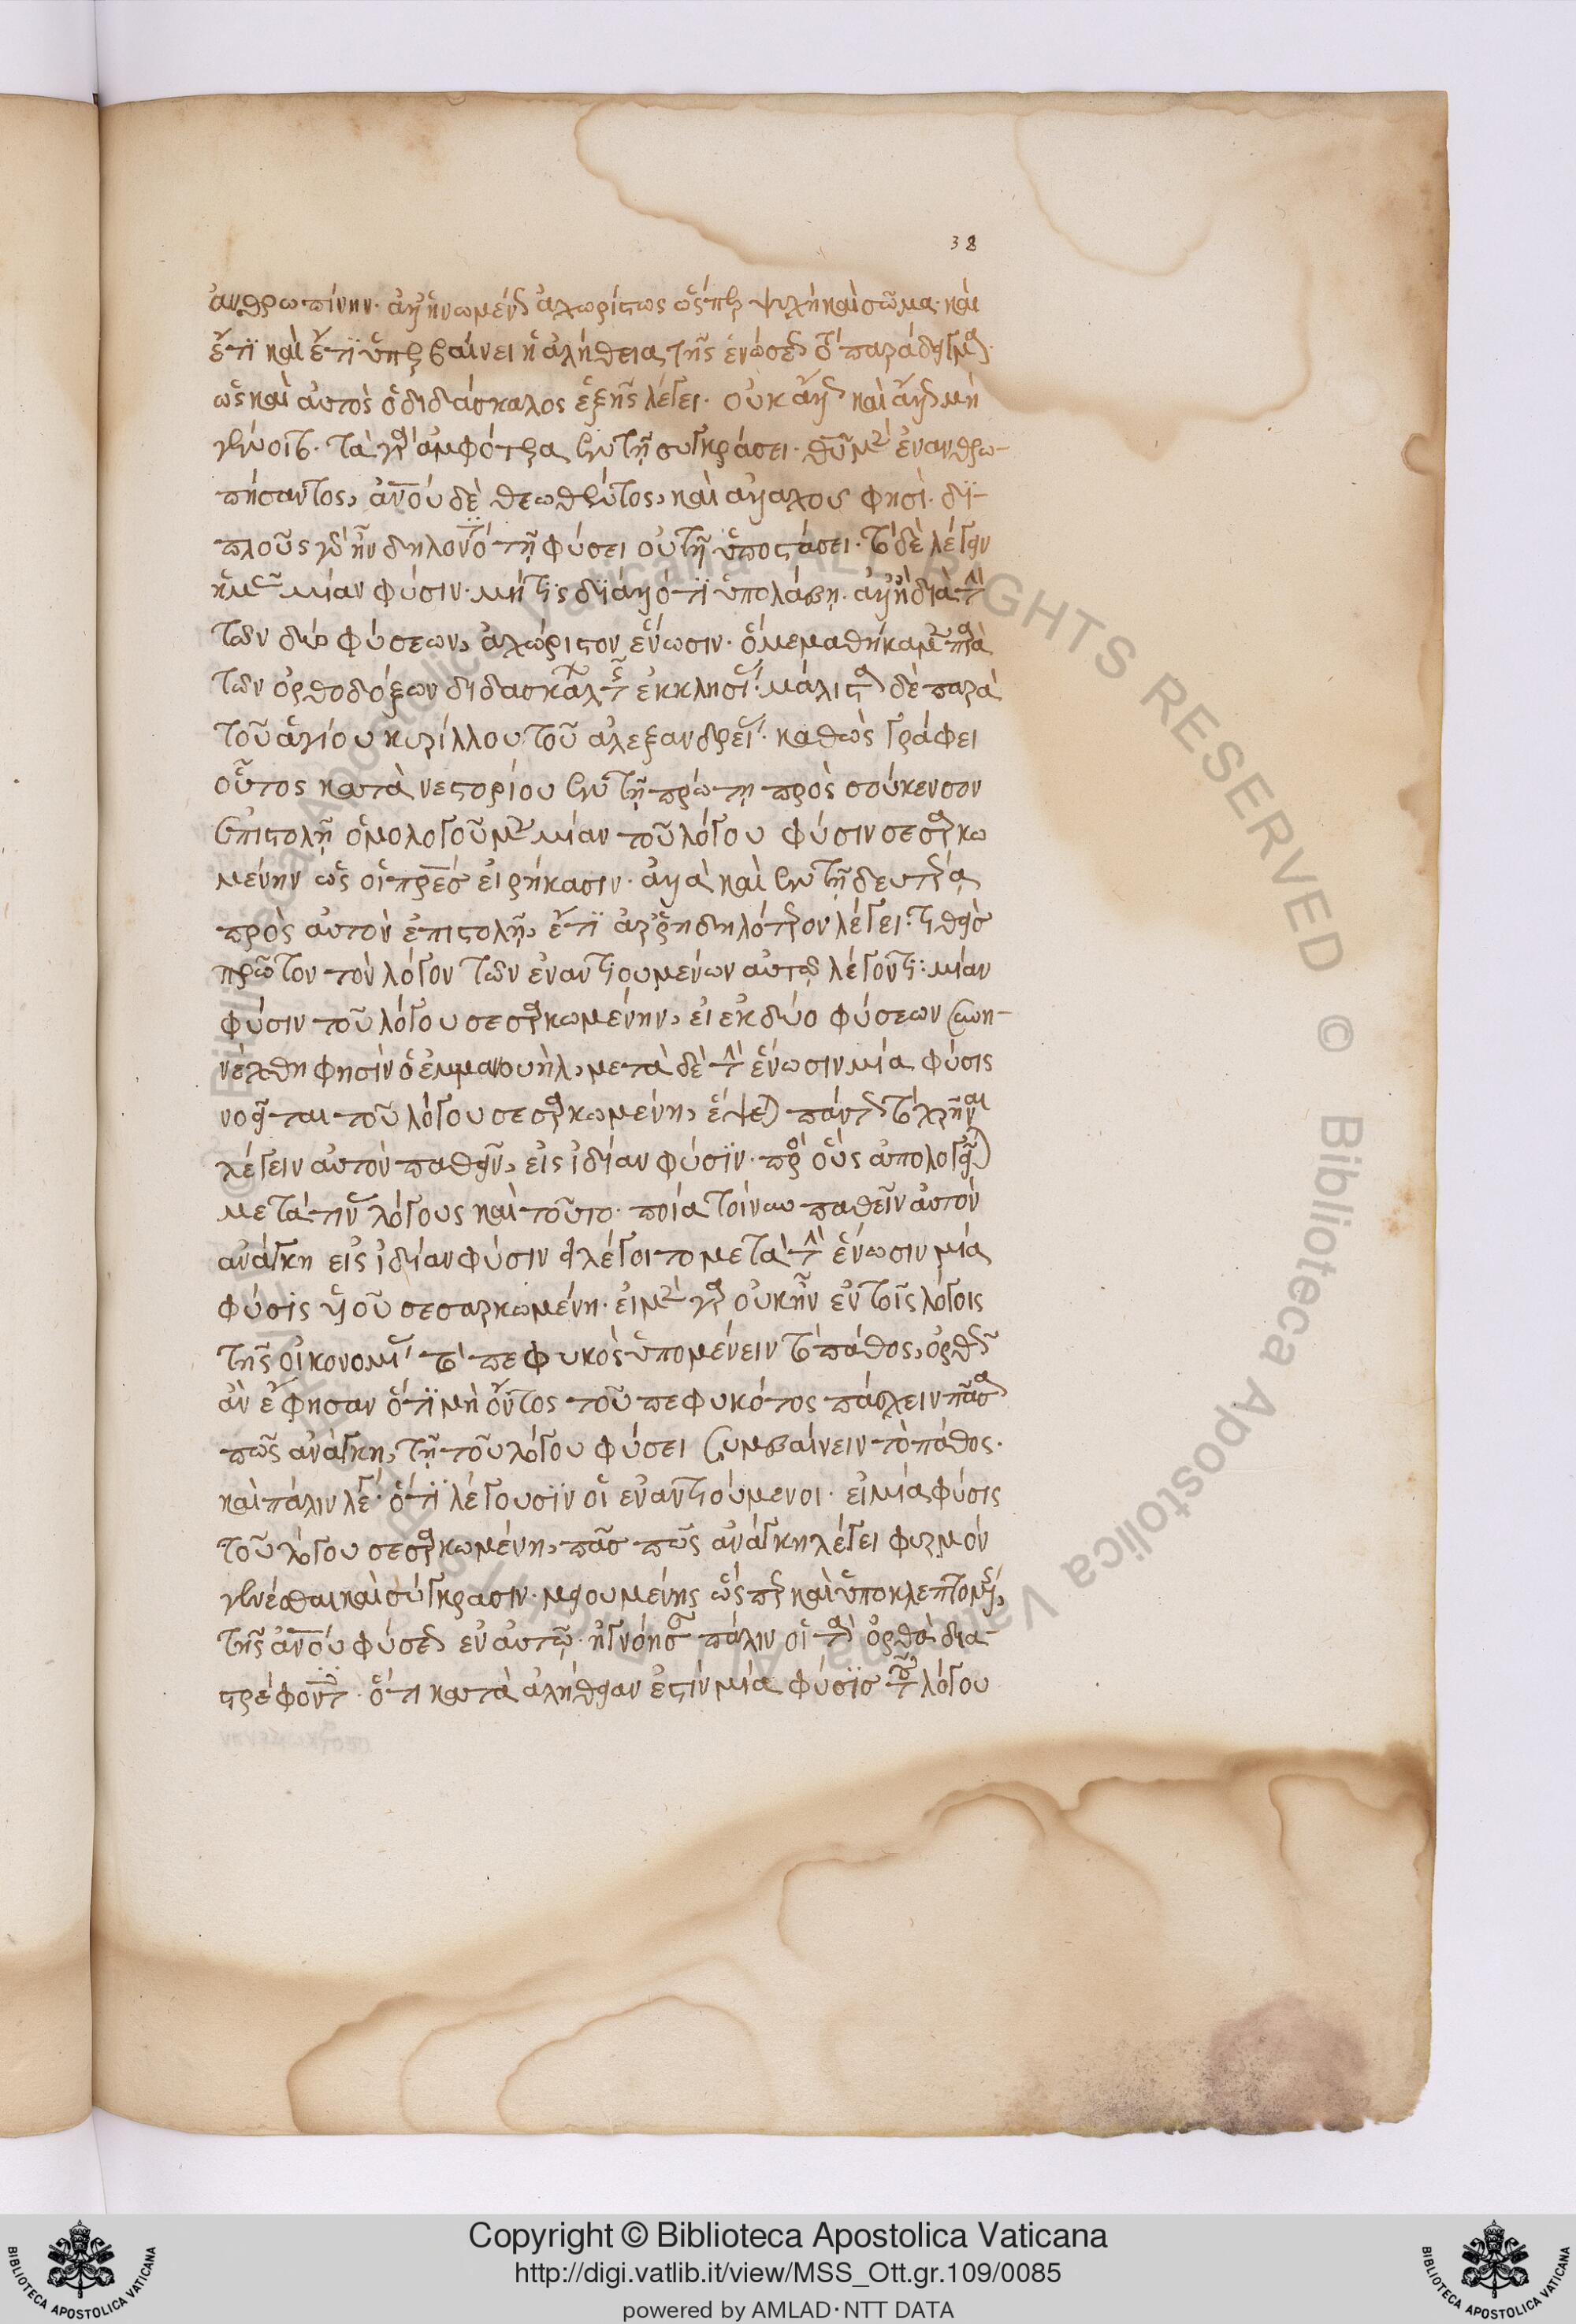 38
ἀνθρωπίνην· ἀλλ' ἡνωμένως ἀχωρίστως ὥσπερ ψυχὴ καὶ σῶμα· καὶ
ἔτι καὶ ἔτι ὑπερβαίνει ἡ ἀλήθεια τῆς ἑνώσεως τὸ παράδειγμα·
ὡς καὶ αὐτὸς ὁ διδάσκαλος ἑξῆς λέγει· οὐκ ἄλλος καὶ ἄλλος μὴ
γένοιτο· τὰ γὰρ ἀμφότερα ἐν τῇ συγκράσει· θῦ μὲν ἐνανθρω-
πήσαντος, ἀνου δὲ θεωθέντος, καὶ ἀλλαχοῦ φησί· δι-
πλοῦς γὰρ ἦν δηλονότι τῇ φύσει οὐ τῇ ὑποστάσει· τὸ δὲ λέγειν
ἡμᾶς μίαν φύσιν· μήτις δι' ἄλλό τι ὑπολάβῃ· ἀλλ' ἢ διὰ τὴν
τῶν δύο φύσεων, ἀχώριστον ἕνωσιν· ὃ μεμαθήκαμεν παρὰ
τῶν ὀρθοδόξων διδασκάλων τῆς ἐκκλησίας· μάλιστα δὲ παρὰ
τοῦ ἁγίου κυρίλλου τοῦ ἀλεξανδρείας· καθὼς γράφει
οὗτος κατὰ νεστορίου ἐν τῇ πρώτῃ πρὸς σούκενσον
ἐπιστολῇ ὁμολογοῦμεν μίαν τοῦ λόγου φύσιν σεσαρκω
μένην ὡς οἱ πρες εἰρήκασιν· ἀλλὰ καὶ ἐν τῇ δευτέρᾳ
πρὸς αὐτὸν ἐπιστολῇ, ἔτι ἀριδηλότερον λέγει· τιθεὶς
πρῶτον τὸν λόγον τῶν ἐναντιουμένων αὐτῷ λέγοντι· μίαν
φύσιν τοῦ λόγου σεσαρκωμένην, εἰ ἐκ δύο φύσεων συνη-
νέχθη φησὶν ὁ ἐμμανουὴλ, μετὰ δὲ τὴν ἕνωσιν μία φύσις
νοεῖται τοῦ λόγου σεσαρκωμένη, ἕψεται πάντως τὸ χρῆναι
λέγειν αὐτὸν παθεῖν, εἰς ἰδίαν φύσιν· πρὸς οὓς ἀπολογεῖται
μετὰ τινας λόγους καὶ τοῦτο· ποία τοίνυν παθεῖν αὐτὸν
ἀνάγκη εἰς ἰδίαν φύσιν εἰ λέγοιτο μετὰ τὴν ἕνωσιν μία
φύσις υἱοῦ σεσαρκωμένη· εἰ μὲν γὰρ οὐκ ἦν ἐν τοῖς λόγοις
τῆς οἰκονομίας τὸ πεφυκὸς ὑπομένειν τὸ πάθος, ὀρθῶς
ἂν ἔφησαν ὅτι μὴ ὄντος τοῦ πεφυκότος πάσχειν πᾶσα
πῶς ἀνάγκη, τῇ τοῦ λόγου φύσει συμβαίνειν τὸ πάθος·
καὶ πάλιν λέγει· ὅτι λέγουσιν οἱ ἐναντιούμενοι· εἰ μία φύσις
τοῦ λόγου σεσαρκωμένη, πᾶσα πῶς ἀνάγκη λέγει φυρμὸν
γενέσθαι καὶ σύγκρασιν· μειουμένης ὥσπερ καὶ ὑποκλεπτομένης,
τῆς ἀνου φύσεως ἐν αὐτῷ· ἠγνόησαν πάλιν οἱ τὰ ὀρθὰ δια-
στρέφοντες· ὅτι κατὰ ἀλήθειαν ἐστὶν μία φύσις τοῦ λόγου
Copyright © Biblioteca Apostolica Vaticana
http://digi.vatlib.it/view/MSS_Ott.gr.109/0085
powered by AMLAD·NTT DATA